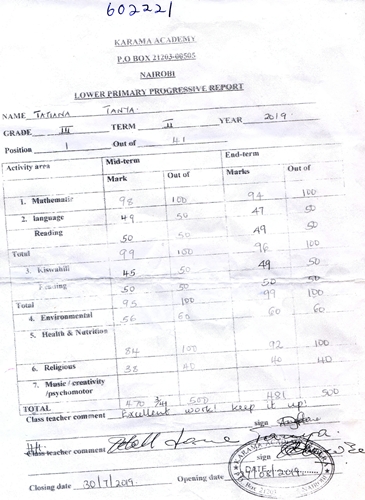 602221
KARAMA ACADEMY
P.O BOX 21203-00505
NAIROBI
LOWER PRIMARY PROGRESSIVE REPORT
NAME TATIANA TANYA
GRADE III TERM II YEAR 2019
Position 1 Out of 41
Activity area Mid-term End-term
Mark Out of Marks Out of
1. Mathematic 98 100 94 100
2. language 49 50 47 50
Reading 50 50 49 50
Total 99 100 96 100
3. Kiswahili 45 50 49 50
50 50 50 50
Total 95 100 99 100
4. Environmental 56 60 60 60
5. Health & Nutrition
84 100 92 100
6. Religious 38 40 40 40
7. Music / creativity
/psychomotor
TOTAL 470 500 481 500
Class teacher comment Excellent work! keep it up!
sign
Class teacher comment
sign
KARAMA
DATE
Closing date 30/7/2019. Opening date 08/2019